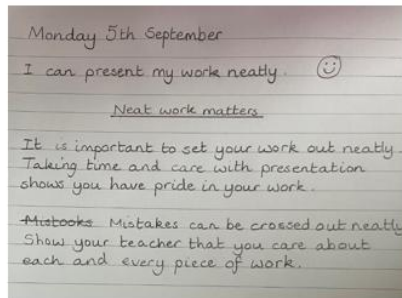 Monday 5th September
I can present my work neatly.
Neat work matters
It is important to set your work out neatly.
Taking time and care with presentation
shows you have pride in your work.
Mistooks Mistakes can be crossed out neatly
Show your teacher that you care about
each and every piece of work.